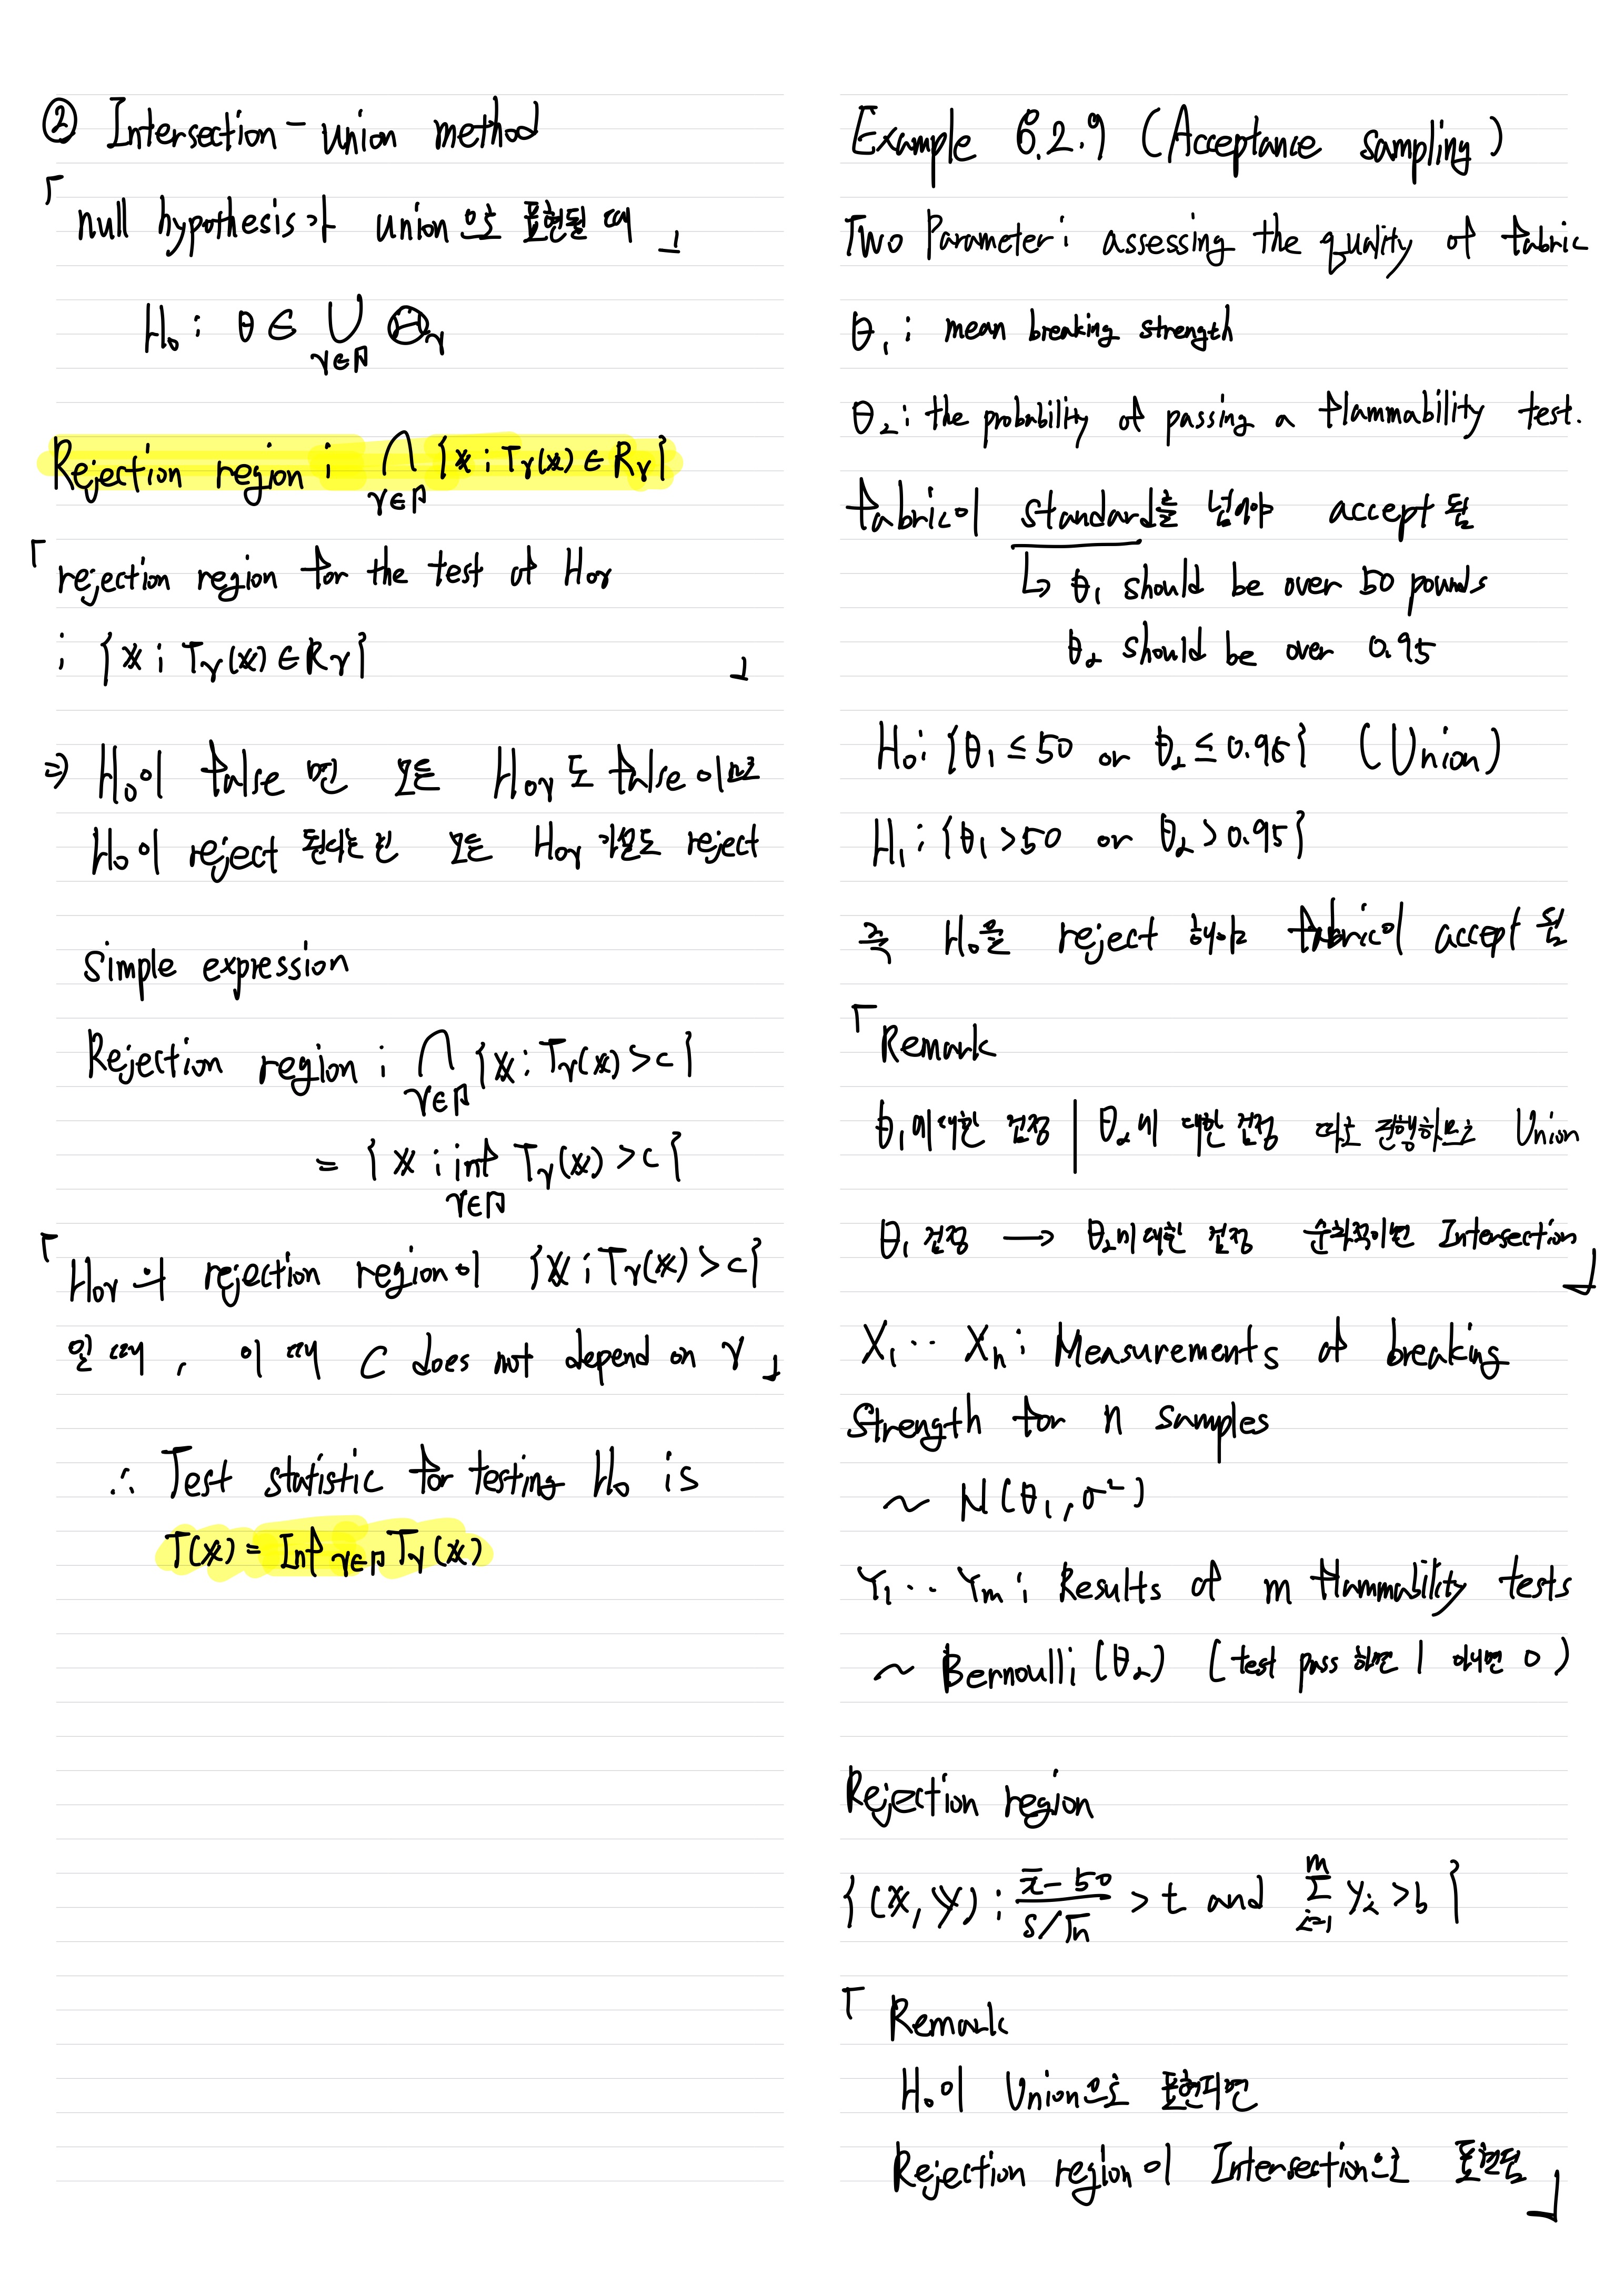 ② Intersection - union method
「 null hypothesis가 union으로 표현될 때 」
H₀ : θ ∈ ⋃_{γ∈Γ} Θ_γ
Rejection region : ⋂_{γ∈Γ} {𝕏 : T_γ(𝕏) ∈ R_γ}
「 rejection region for the test of H₀γ
: {𝕏 : T_γ(𝕏) ∈ R_γ} 」
⇒ H₀이 false 면 모든 H₀γ도 false 이므로
H₀이 reject 된다는건 모든 H₀γ 가설도 reject
Simple expression
Rejection region : ⋂_{γ∈Γ} {𝕏 : T_γ(𝕏) > c}
= {𝕏 : inf_{γ∈Γ} T_γ(𝕏) > c}
「 H₀γ의 rejection region이 {𝕏 : T_γ(𝕏) > c}
일 때, 이 때 C does not depend on γ 」
∴ Test statistic for testing H₀ is
T(𝕏) = Inf_{γ∈Γ} T_γ(𝕏)
Example 8.2.9 (Acceptance sampling)
Two Parameter : assessing the quality of fabric
θ₁ : mean breaking strength
θ₂ : the probability of passing a flammability test.
fabric이 standard를 넘어야 accept 됨
↳ θ₁ should be over 50 pounds
θ₂ should be over 0.95
H₀ : {θ₁ ≤ 50 or θ₂ ≤ 0.95} (Union)
H₁ : {θ₁ > 50 or θ₂ > 0.95}
즉 H₀을 reject 해야 fabric이 accept 됨
「 Remark
θ₁에 대한 검정 | θ₂에 대한 검정 따로 진행하므로 Union
θ₁ 검정 → θ₂에 대한 검정 순차적이면 Intersection 」
X₁ ‥ Xₙ : Measurements of breaking
Strength for n samples
~ N(θ₁, σ²)
Y₁ ‥ Yₘ : Results of m flammability tests
~ Bernoulli(θ₂) (test pass 하면 1 아니면 0)
Rejection region
{(𝕏, 𝕐) : (x̄ - 50)/(s/√n) > t and Σ_{i=1}^{m} y_i > b}
「 Remark
H₀이 Union으로 표현되면
Rejection region이 Intersection으로 표현됨 」